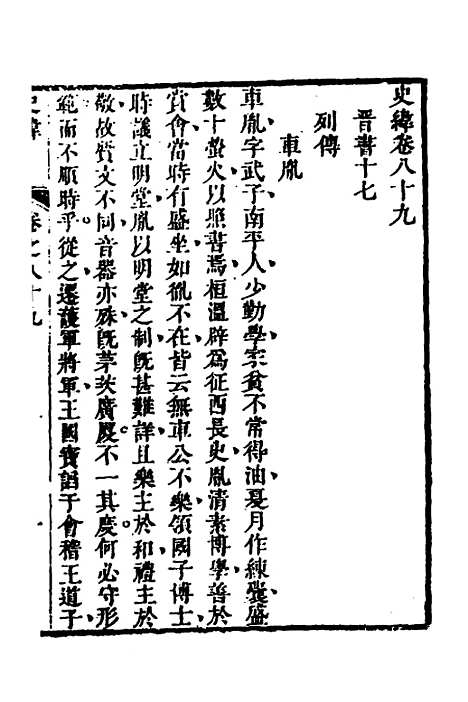 史緯卷八十九
晋書十七
列傳
車胤
車胤字武子南平人少勤學家貧不常得油夏月作練囊盛
數十螢火以照書焉桓溫辟為征西長史胤清素博學善於
賞會當時有盛坐如胤不在皆云無車公不樂領國子博士
時議立明堂胤以明堂之制旣甚難詳且樂主於和禮主於
敬故質文不同音器亦殊旣茅茨廣廈不一其度何必守形
範而不順時乎從之遷護軍將軍王國寶諂于會稽王道子
史緯
卷之八十九